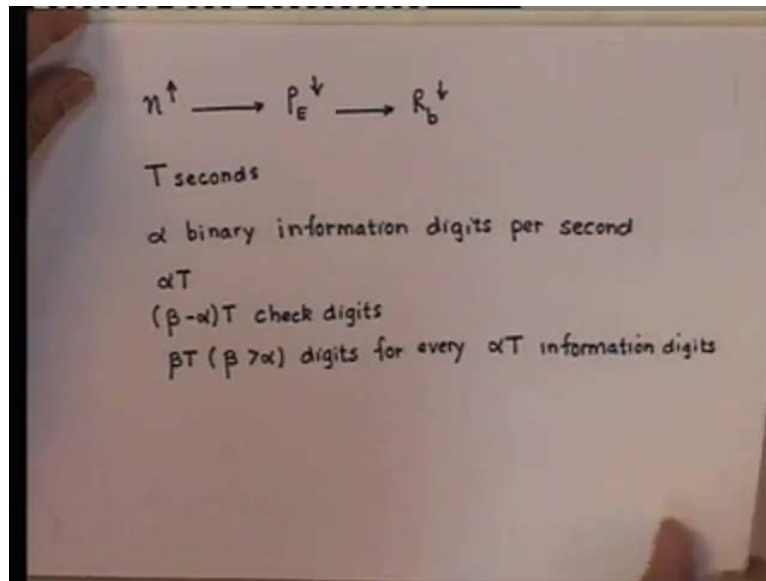 n↑ ⟶ P_E↓ ⟶ R_b↓
T seconds
α binary information digits per second
αT
(β-α)T check digits
βT (β>α) digits for every αT information digits